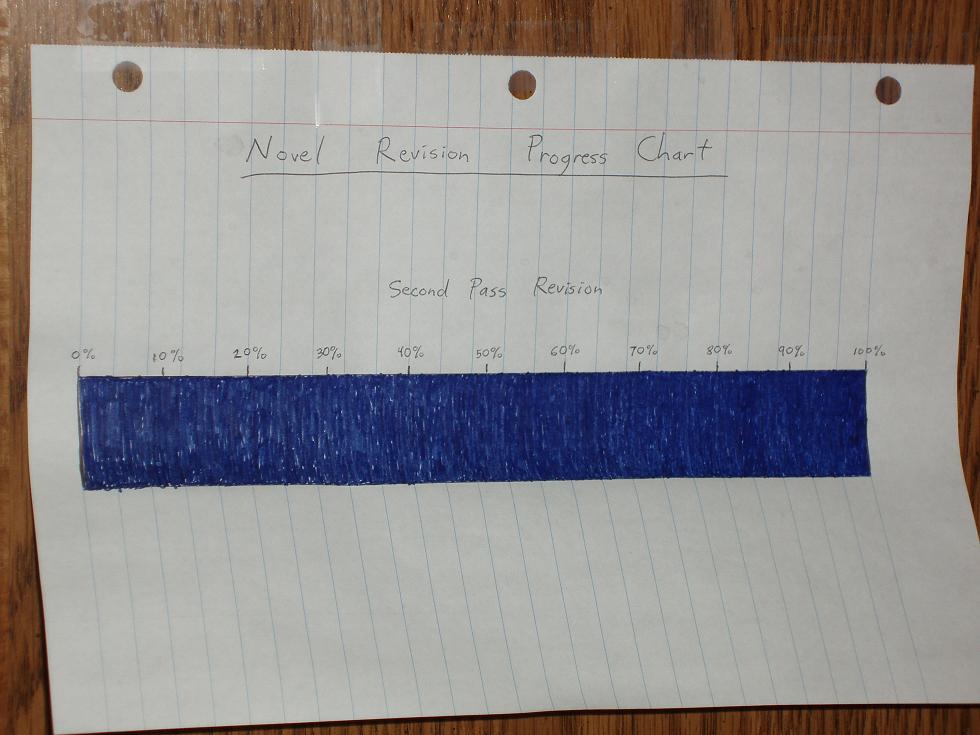 Novel Revision Progress Chart
Second Pass Revision
0% 10% 20% 30% 40% 50% 60% 70% 80% 90% 100%